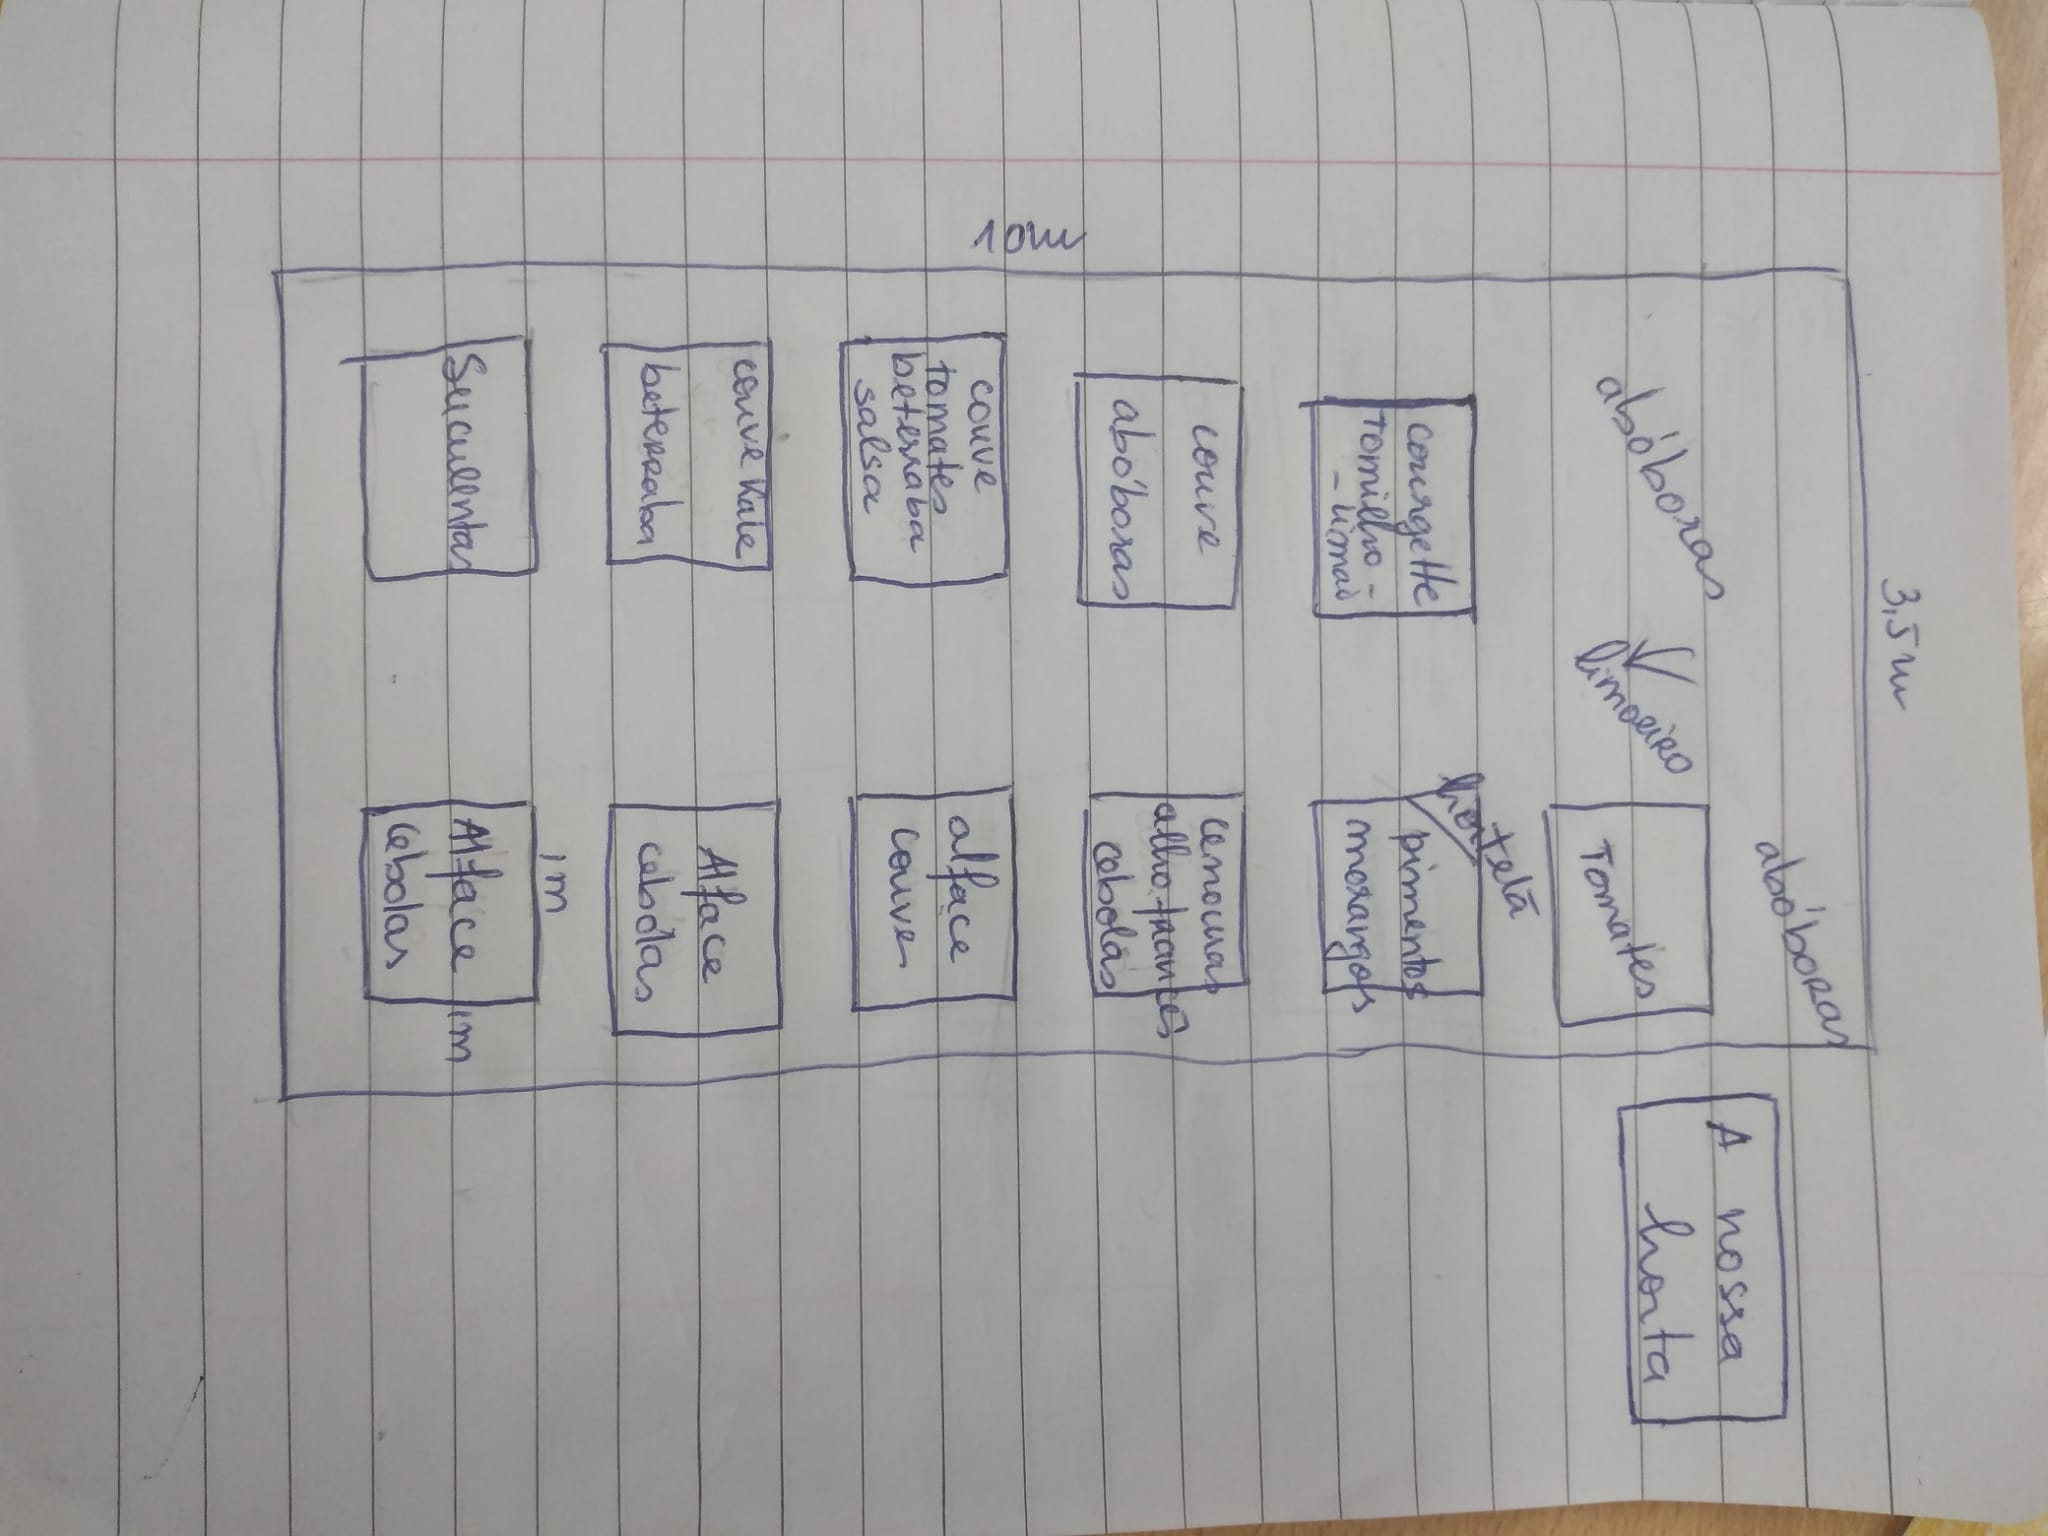 3,5m
A nossa
horta
abóboras
abóboras
limoeiro
Tomates
hortelã
courgette
tomilho-
-limão
pimentos
morangos
couve
abóboras
cenouras
alho francês
cebolas
10m
couve
tomates
beterraba
salsa
alface
couve
couve Kale
beterraba
Alface
cebolas
1m
Suculentas
Alface 1m
cebolas